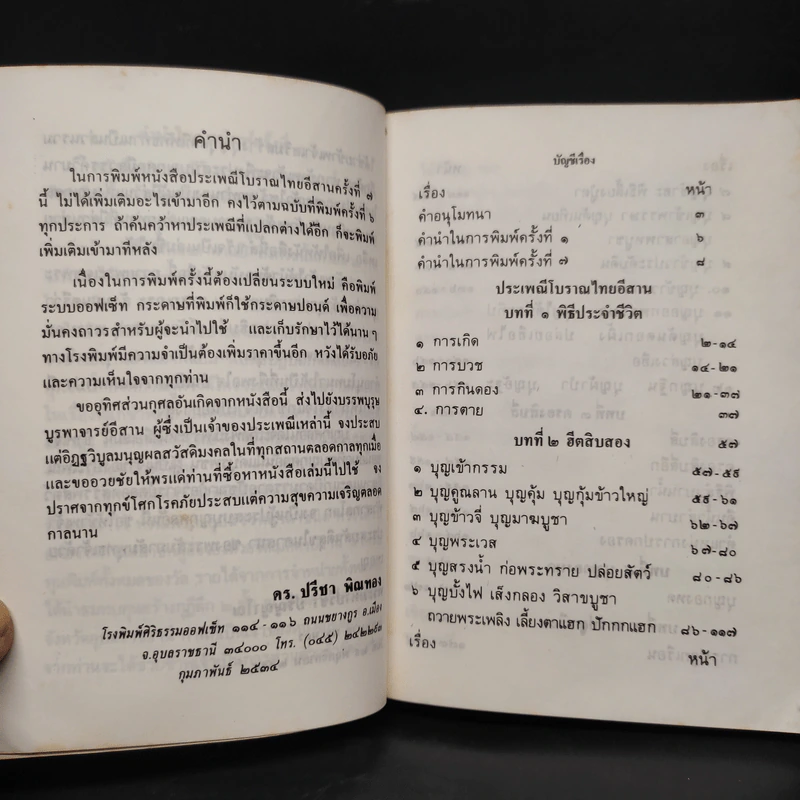 คำนำ
ในการพิมพ์หนังสือประเพณีโบราณไทยอีสานครั้งที่ ๗
นี้ ไม่ได้เพิ่มเติมอะไรเข้ามาอีก คงไว้ตามฉบับที่พิมพ์ครั้งที่ ๖
ทุกประการ ถ้าค้นคว้าหาประเพณีที่แปลกต่างได้อีก ก็จะพิมพ์
เพิ่มเติมเข้ามาทีหลัง
เนื่องในการพิมพ์ครั้งนี้ต้องเปลี่ยนระบบใหม่ คือพิมพ์
ระบบออฟเซ็ท กระดาษที่พิมพ์ก็ใช้กระดาษปอนด์ เพื่อความ
มั่นคงถาวรสำหรับผู้จะนำไปใช้ และเก็บรักษาไว้ได้นาน ๆ
ทางโรงพิมพ์มีความจำเป็นต้องเพิ่มราคาขึ้นอีก หวังได้รับอภัย
และความเห็นใจจากทุกท่าน
ขออุทิศส่วนกุศลอันเกิดจากหนังสือนี้ ส่งไปยังบรรพบุรุษ
บูรพาจารย์อีสาน ผู้ซึ่งเป็นเจ้าของประเพณีเหล่านี้ จงประสบ
แต่อิฏฐวิบูลมนุญผลสวัสดิมงคลในที่ทุกสถานตลอดกาลทุกเมื่อ
และขออวยชัยให้พรแด่ท่านที่ซื้อหาหนังสือเล่มนี้ไปใช้ จง
ปราศจากทุกข์โศกโรคภัยประสบแต่ความสุขความเจริญตลอด
กาลนาน
ดร. ปรีชา พิณทอง
โรงพิมพ์ศิริธรรมออฟเซ็ท ๑๑๔-๑๑๖ ถนนชยางกูร อ.เมือง
จ.อุบลราชธานี ๓๔๐๐๐ โทร. (๐๔๕) ๒๔๒๒๙๓
กุมภาพันธ์ ๒๕๓๔
บัญชีเรื่อง
เรื่อง หน้า
คำอนุโมทนา ๓
คำนำในการพิมพ์ครั้งที่ ๑ ๖
คำนำในการพิมพ์ครั้งที่ ๗ ๘
ประเพณีโบราณไทยอีสาน
บทที่ ๑ พิธีประจำชีวิต
๑ การเกิด ๒-๑๔
๒ การบวช ๑๔-๒๑
๓ การกินดอง ๒๑-๓๗
๔. การตาย ๓๗
บทที่ ๒ ฮีตสิบสอง ๕๗
๑ บุญเข้ากรรม ๕๗-๕๙
๒ บุญคูณลาน บุญคุ้ม บุญกุ้มข้าวใหญ่ ๕๙-๖๑
๓ บุญข้าวจี่ บุญมาฆบูชา ๖๒-๖๗
๔ บุญพระเวส ๖๗-๘๐
๕ บุญสรงน้ำ ก่อพระทราย ปล่อยสัตว์ ๘๐-๘๖
๖ บุญบั้งไฟ เส็งกลอง วิสาขบูชา
ถวายพระเพลิง เลี้ยงตาแฮก ปักกกแฮก ๘๖-๑๑๗
เรื่อง หน้า